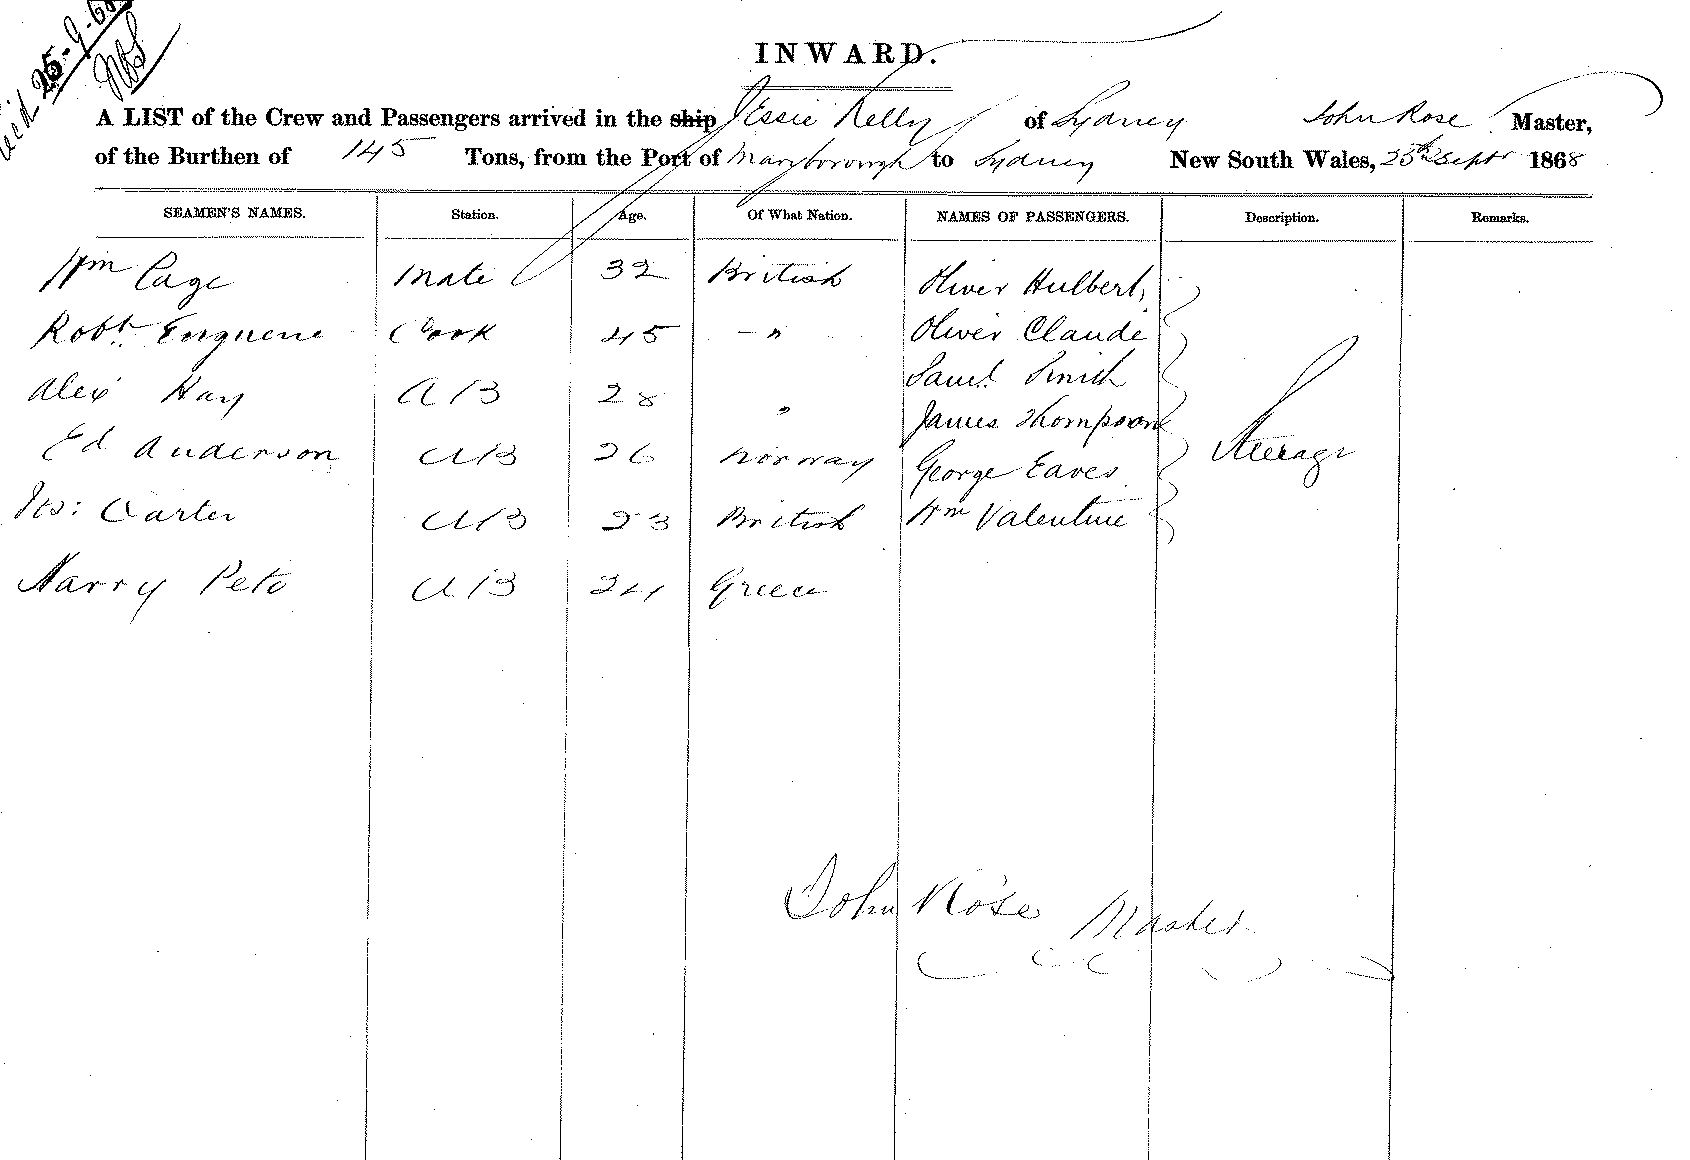 25-9-68
INWARD.
A LIST of the Crew and Passengers arrived in the ship Jessie Kelly of Sydney John Rose Master,
of the Burthen of 145 Tons, from the Port of Maryborough to Sydney New South Wales, 25th Septr 1868
SEAMEN'S NAMES. Station. Age. Of What Nation. NAMES OF PASSENGERS. Description. Remarks.
Wm Page Mate 32 British Oliver Hulbert,
Robt. Cook 45 - " Oliver Claude
Alex Hay AB 28 " Saml. Smith
James Thompson
Ed Anderson AB 26 Norway George Eaves Steerage
Carter AB 23 British Wm Valentine
Harry Peto AB 24 Greece
John Rose Master